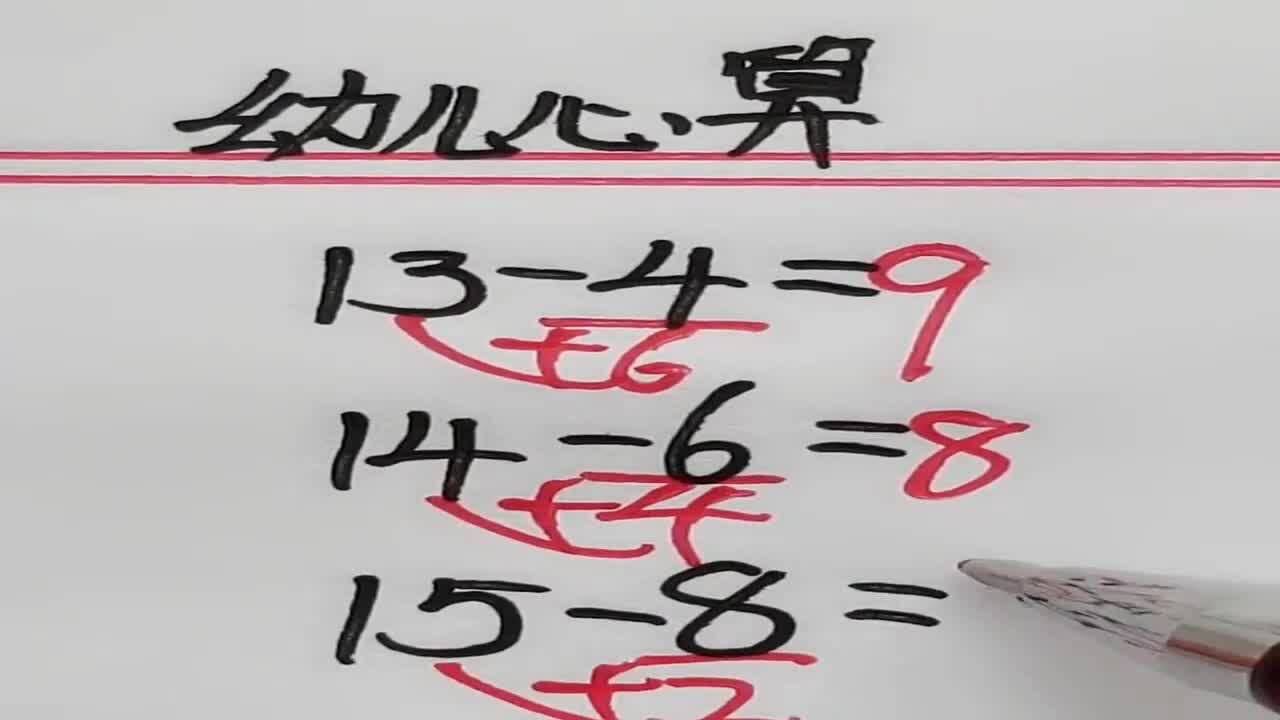 幼儿心算
13-4=9
+6
14-6=8
+4
15-8=
+2